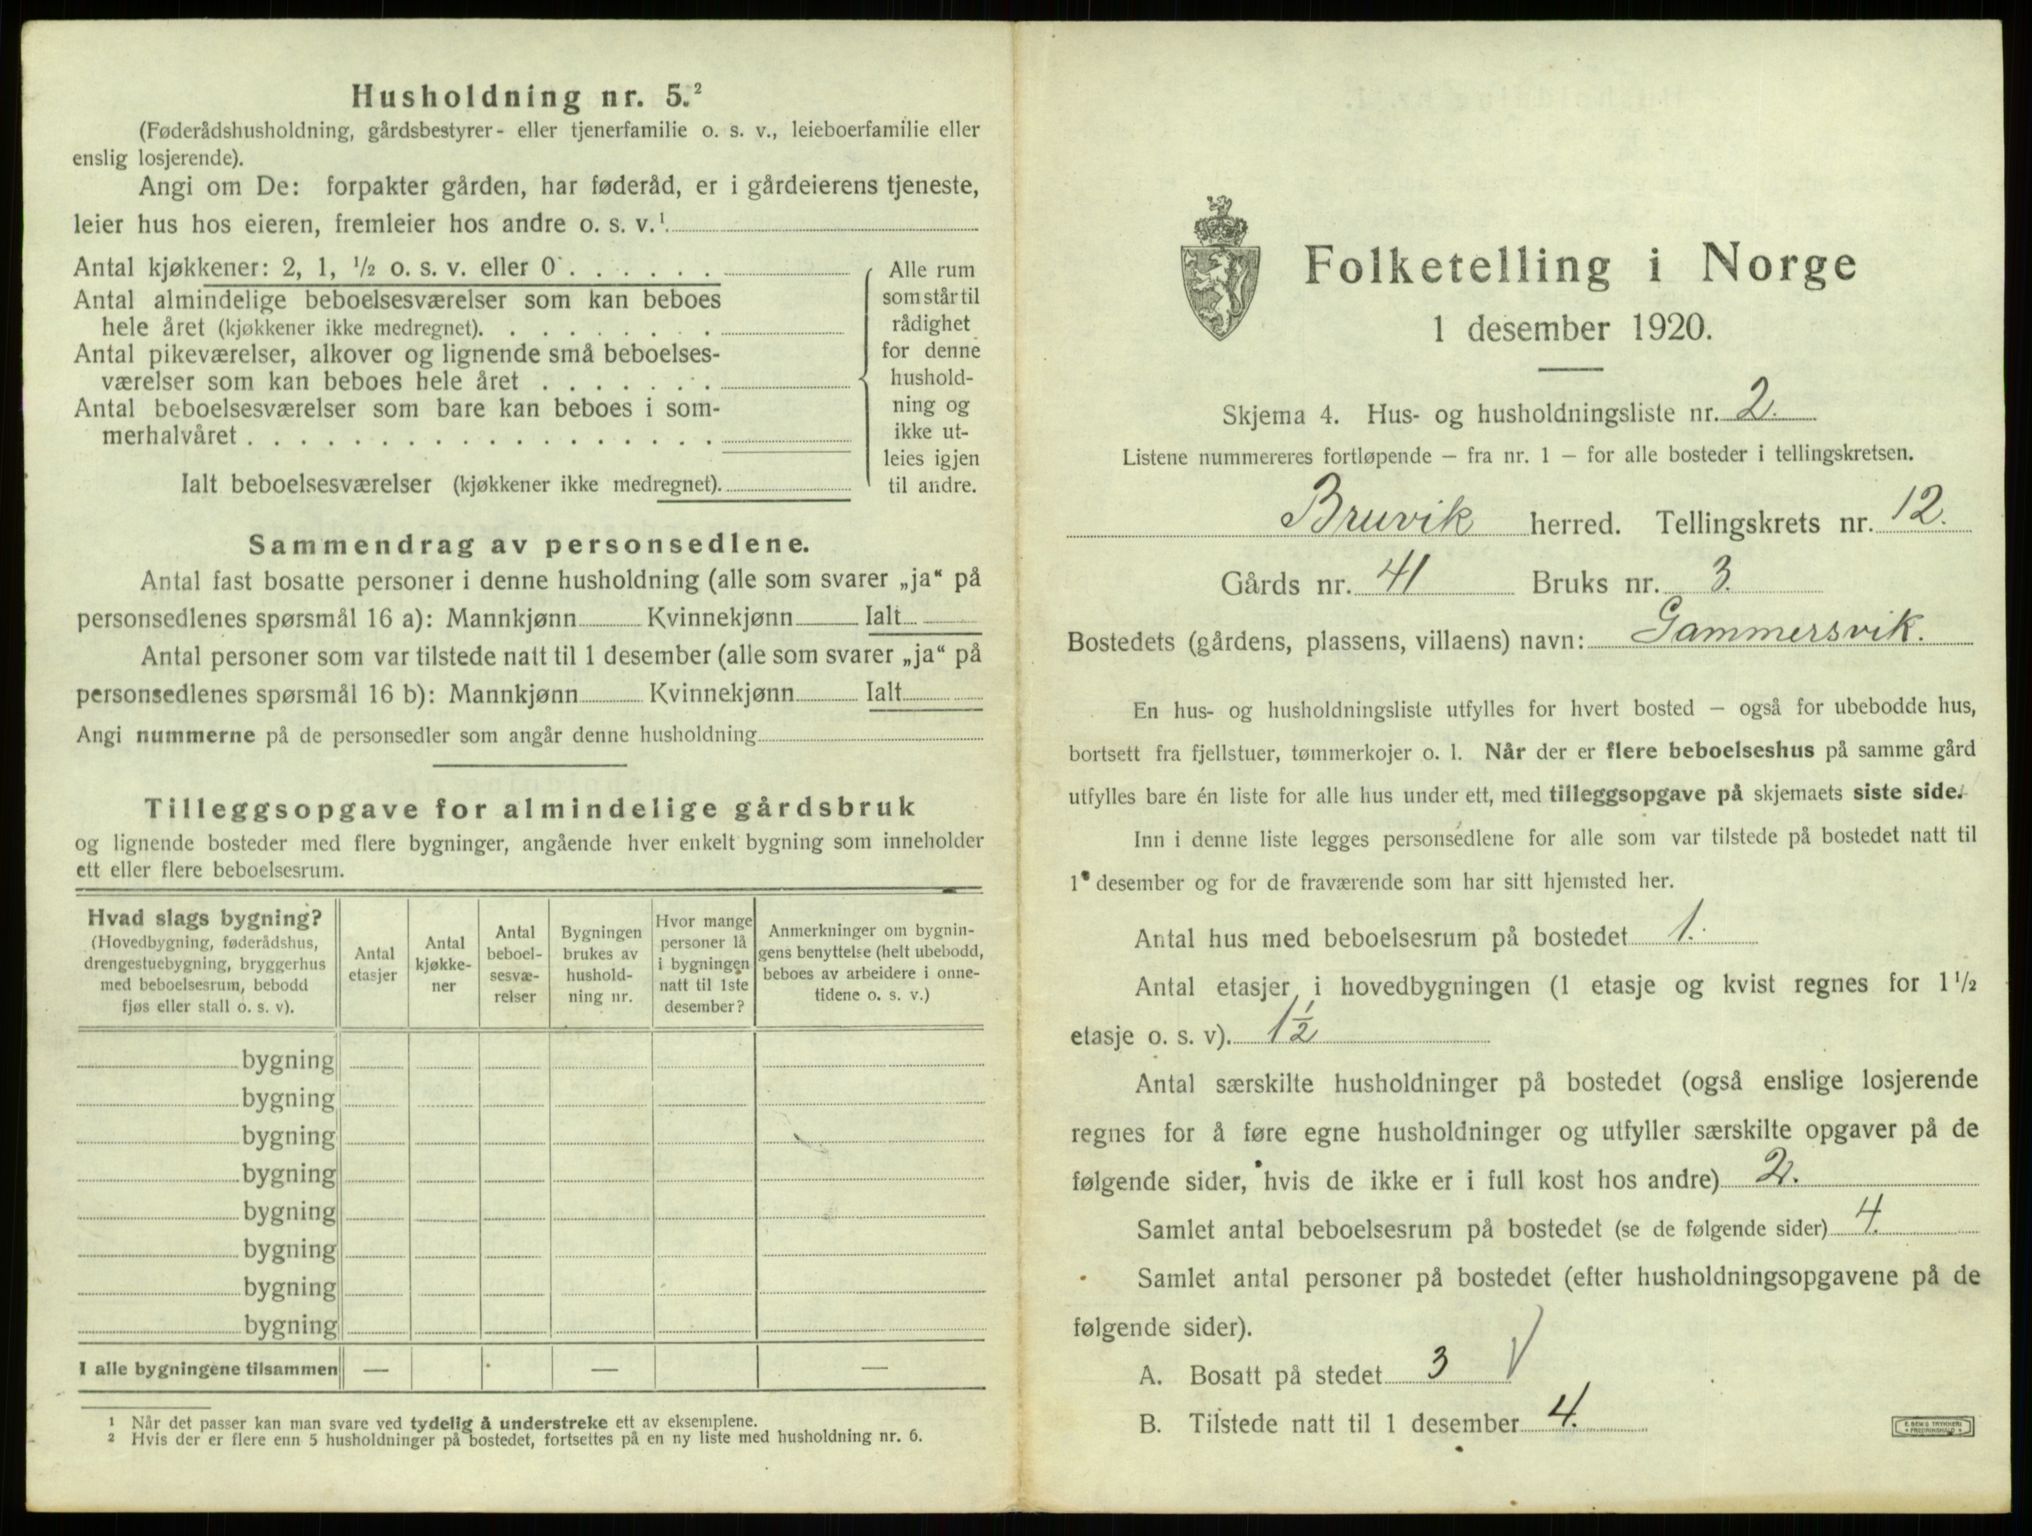 Husholdning nr. 5.²
(Føderådshusholdning, gårdsbestyrer- eller tjenerfamilie o. s. v., leieboerfamilie eller
enslig losjerende).
Angi om De: forpakter gården, har føderåd, er i gårdeierens tjeneste,
leier hus hos eieren, fremleier hos andre o. s. v.¹
Antal kjøkkener: 2, 1, ½ o. s. v. eller 0
Antal almindelige beboelsesværelser som kan beboes
hele året (kjøkkener ikke medregnet).
Antal pikeværelser, alkover og lignende små beboelses-
værelser som kan beboes hele året
Antal beboelsesværelser som bare kan beboes i som-
merhalvåret
Ialt beboelsesværelser (kjøkkener ikke medregnet).
Alle rum
som står til
rådighet
for denne
hushold-
ning og
ikke ut-
leies igjen
til andre.
Sammendrag av personsedlene.
Antal fast bosatte personer i denne husholdning (alle som svarer „ja“ på
personsedlenes spørsmål 16 a): Mannkjønn Kvinnekjønn Ialt
Antal personer som var tilstede natt til 1 desember (alle som svarer „ja“ på
personsedlenes spørsmål 16 b): Mannkjønn Kvinnekjønn Ialt
Angi nummerne på de personsedler som angår denne husholdning
Tilleggsopgave for almindelige gårdsbruk
og lignende bosteder med flere bygninger, angående hver enkelt bygning som inneholder
ett eller flere beboelsesrum.
Hvad slags bygning?
(Hovedbygning, føderådshus,
drengestuebygning, bryggerhus
med beboelsesrum, bebodd
fjøs eller stall o. s. v).
Antal
etasjer
Antal
kjøkke-
ner
Antal
beboel-
sesvæ-
relser
Bygningen
brukes av
hushold-
ning nr.
Hvor mange
personer lå
i bygningen
natt til 1ste
desember?
Anmerkninger om bygnin-
gens benyttelse (helt ubebodd,
beboes av arbeidere i onne-
tidene o. s. v.)
bygning
bygning
bygning
bygning
bygning
bygning
bygning
bygning
I alle bygningene tilsammen — — —
¹ Når det passer kan man svare ved tydelig å understreke ett av eksemplene.
² Hvis der er flere enn 5 husholdninger på bostedet, fortsettes på en ny liste med husholdning nr. 6.
Folketelling i Norge
1 desember 1920.
Skjema 4. Hus- og husholdningsliste nr. 2.
Listene nummereres fortløpende — fra nr. 1 — for alle bosteder i tellingskretsen.
Bruvik herred. Tellingskrets nr. 12.
Gårds nr. 41 Bruks nr. 3.
Bostedets (gårdens, plassens, villaens) navn: Gammersvik.
En hus- og husholdningsliste utfylles for hvert bosted — også for ubebodde hus,
bortsett fra fjellstuer, tømmerkojer o. l. Når der er flere beboelseshus på samme gård
utfylles bare én liste for alle hus under ett, med tilleggsopgave på skjemaets siste side.
Inn i denne liste legges personsedlene for alle som var tilstede på bostedet natt til
1 desember og for de fraværende som har sitt hjemsted her.
Antal hus med beboelsesrum på bostedet 1.
Antal etasjer i hovedbygningen (1 etasje og kvist regnes for 1½
etasje o. s. v). 1½
Antal særskilte husholdninger på bostedet (også enslige losjerende
regnes for å føre egne husholdninger og utfyller særskilte opgaver på de
følgende sider, hvis de ikke er i full kost hos andre) 2.
Samlet antal beboelsesrum på bostedet (se de følgende sider) 4.
Samlet antal personer på bostedet (efter husholdningsopgavene på de
følgende sider).
A. Bosatt på stedet 3 √
B. Tilstede natt til 1 desember 4.
E. SEM'S TRYKKERI
FREDRIKSHALD